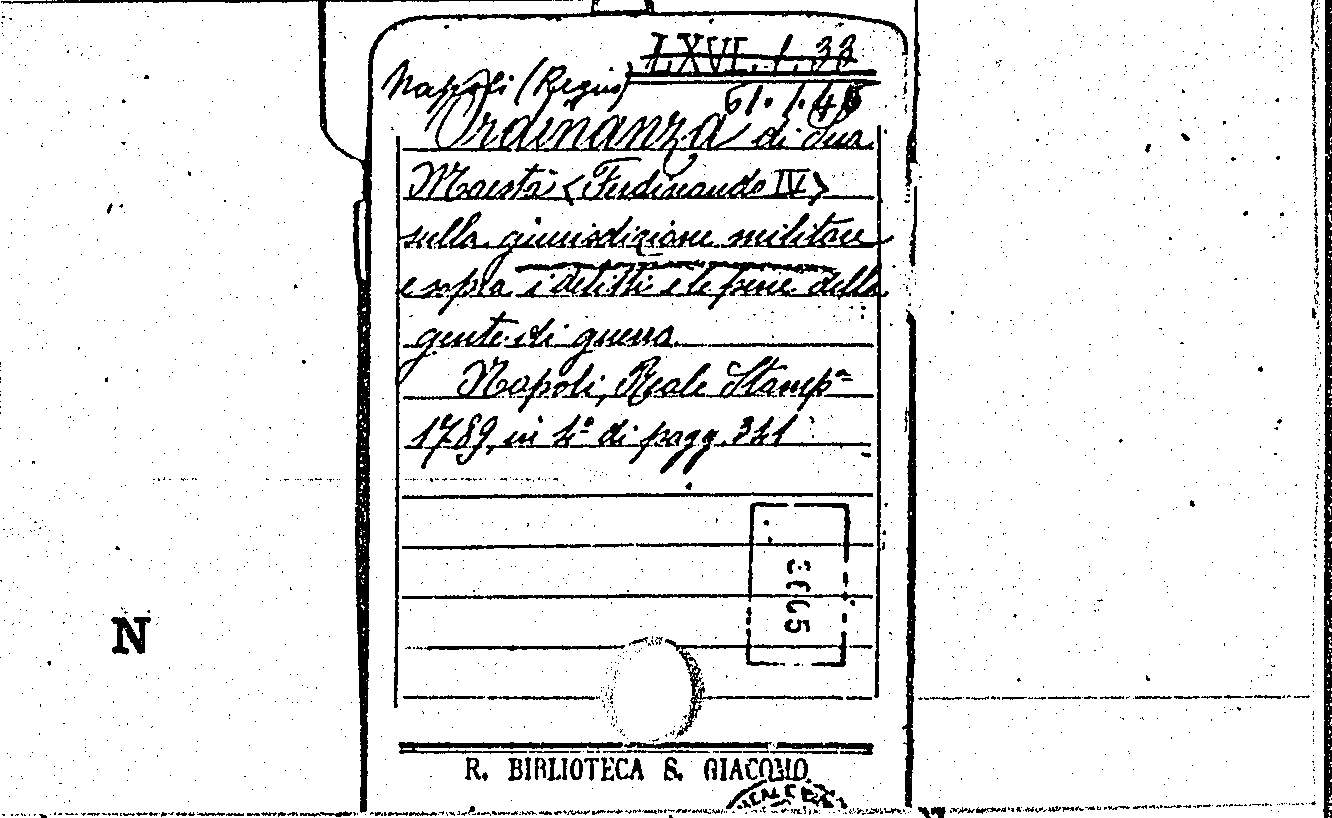 LXVI. 1. 33
Napoli (Regno)
61. 1. 45
Ordinanza di Sua
Maestà <Ferdinando IV>
sulla giurisdizione militare
e sopra i delitti e le pene della
gente di guerra
Napoli, Reale Stampª
1789, in 4º di pagg. 341
N
R. BIBLIOTECA S. GIACOMO